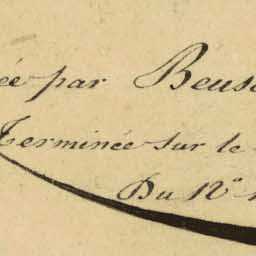 ée par Beus
Terminée sur le
Du 12e